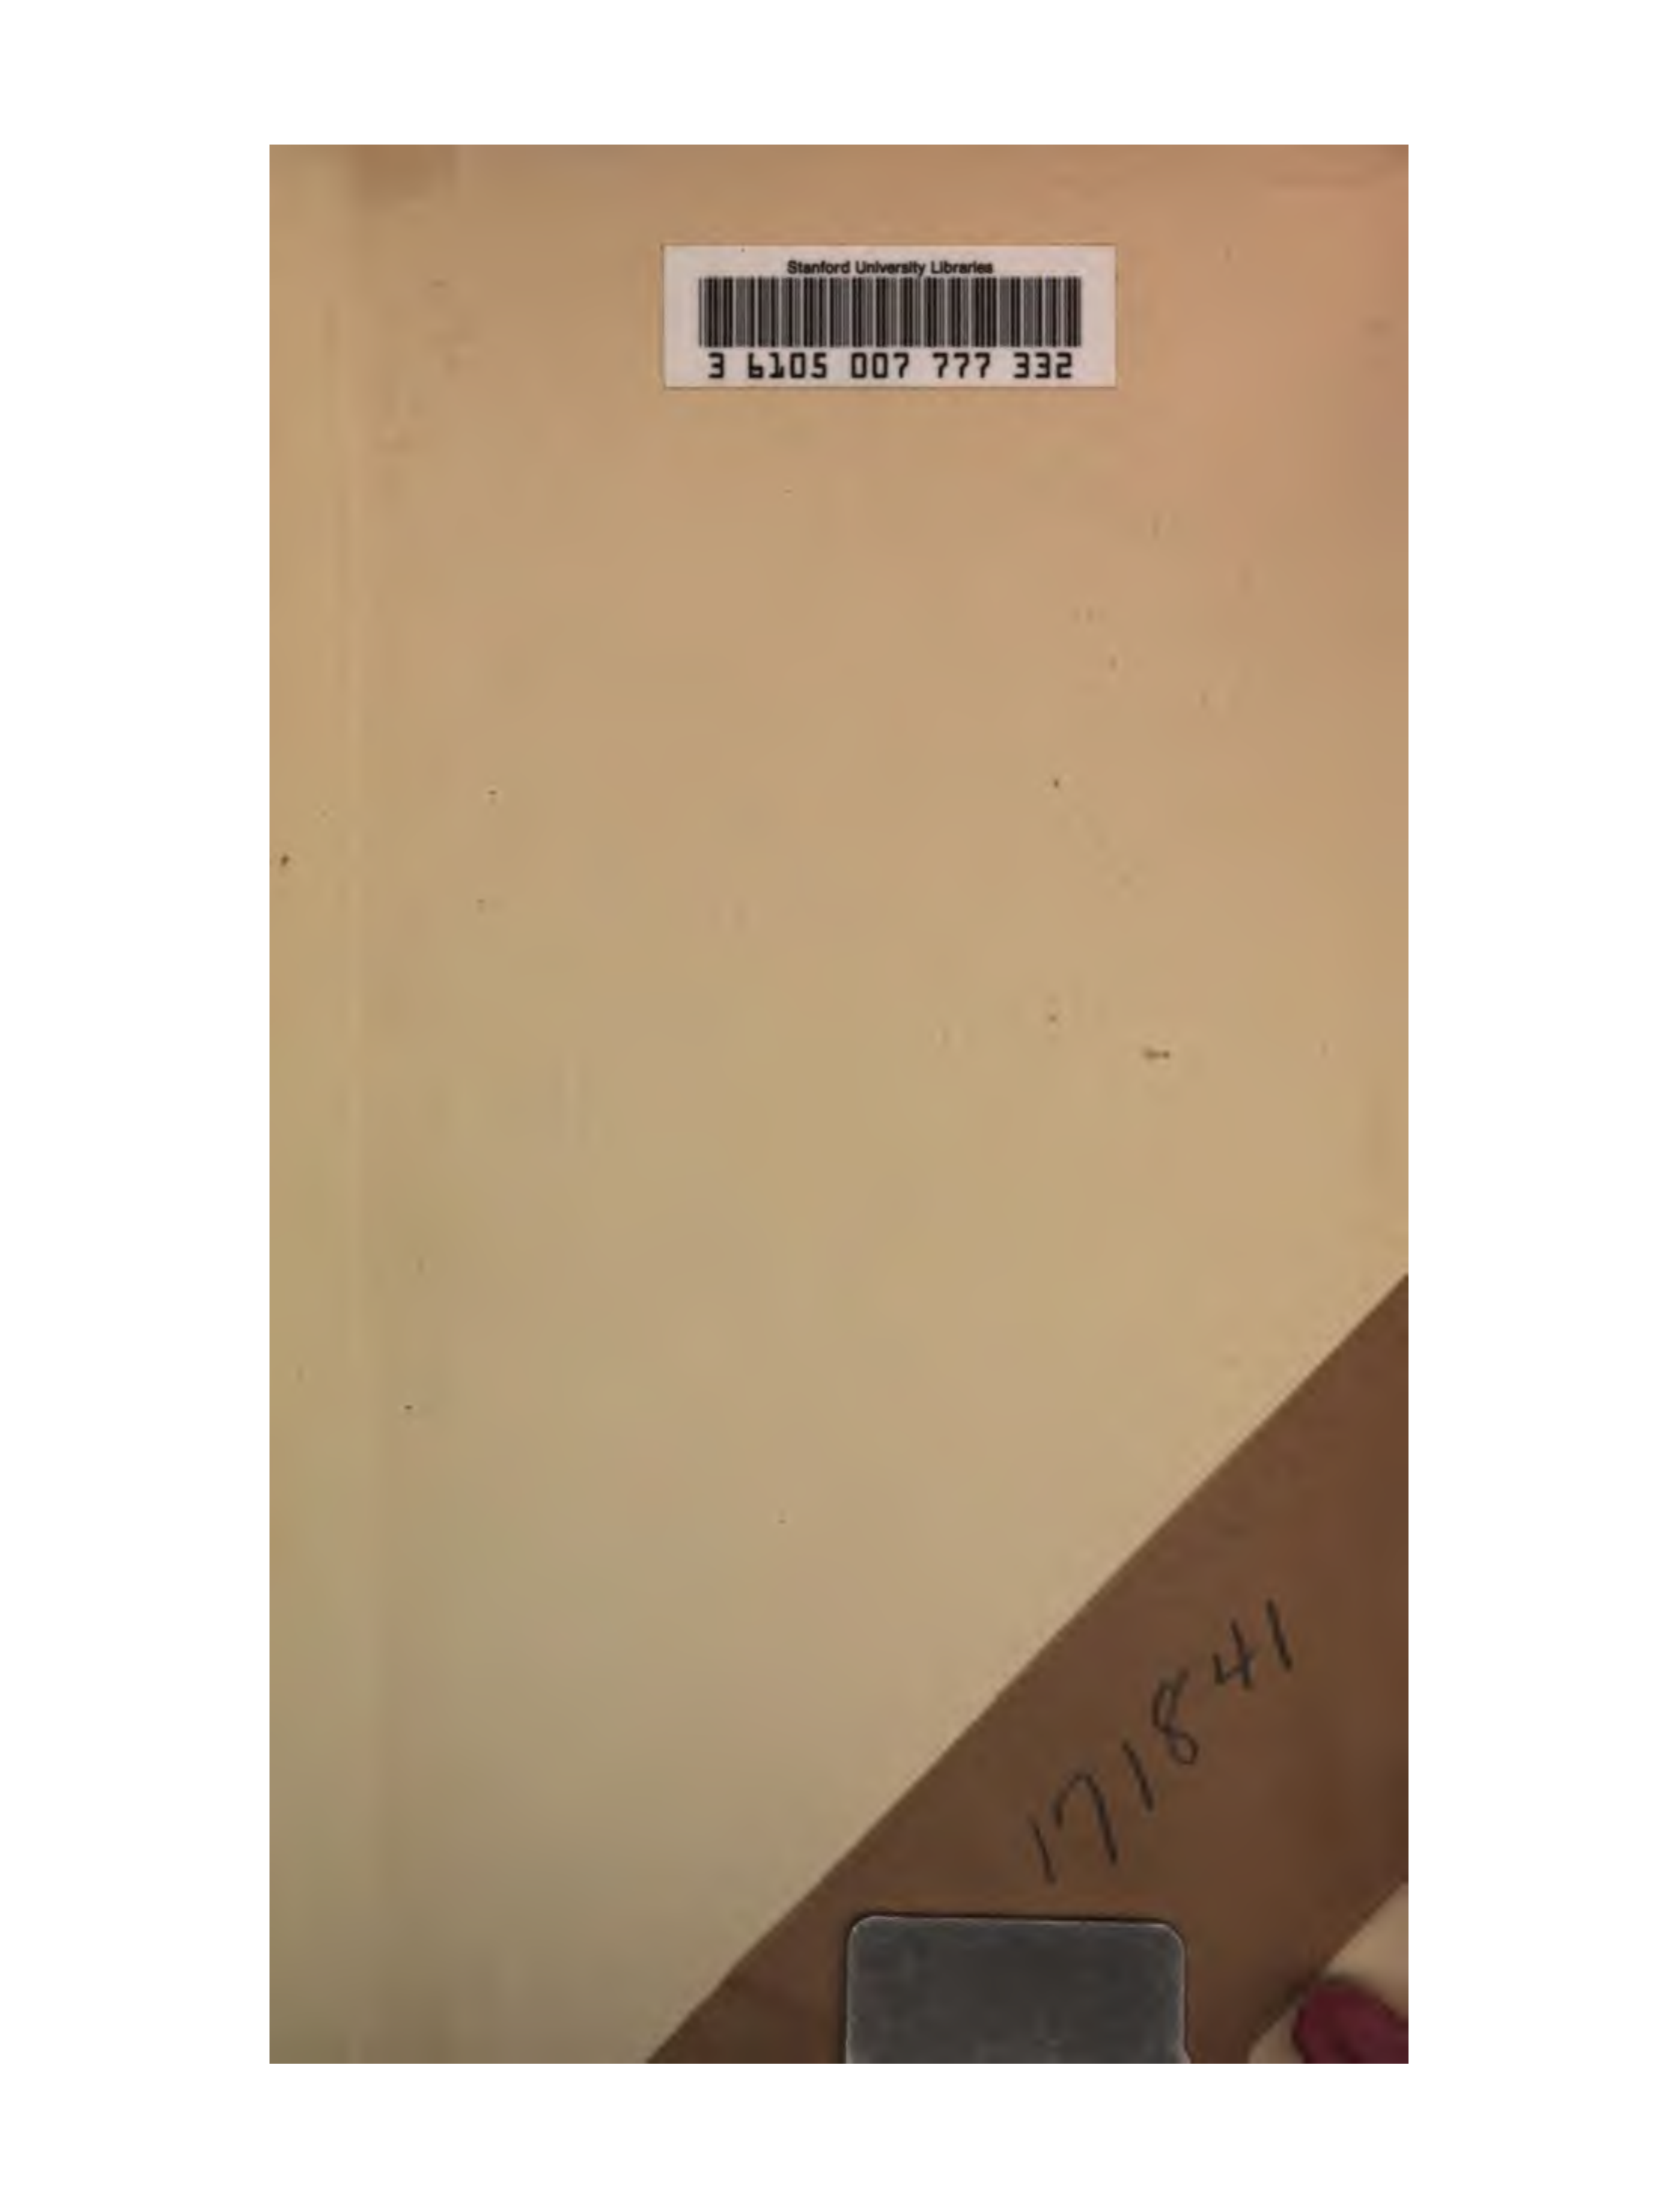 Stanford University Libraries
3 6105 007 777 332
171841